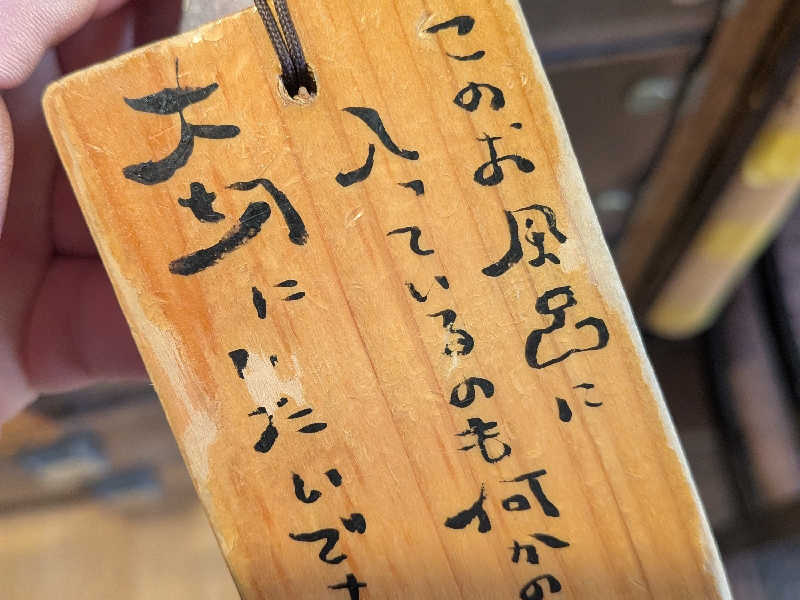 このお風呂に
入っているのも何かの
大切にたいです